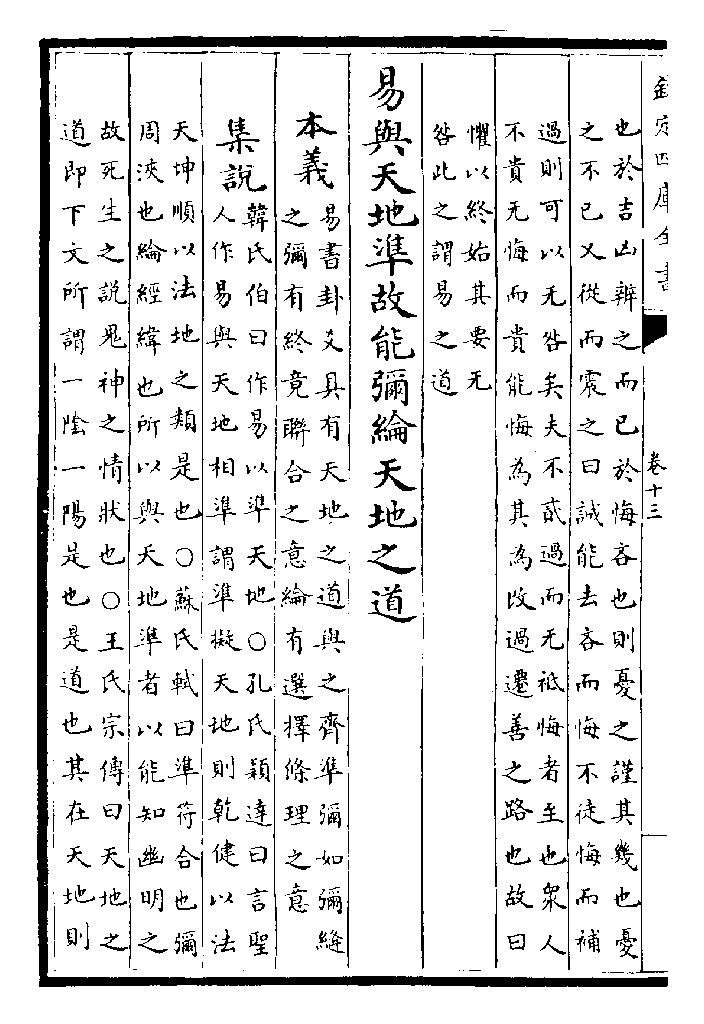 欽定四庫全書
卷十三
也於吉凶辨之而已於悔吝也則憂之謹其幾也憂
之不已又從而震之曰誠能去吝而悔不徒悔而補
過則可以无咎矣夫不貳過而无祗悔者至也衆人
不貴无悔而貴能悔為其為改過遷善之路也故曰
懼以終始其要无
咎此之謂易之道
易與天地準故能彌綸天地之道
本義
易書卦爻具有天地之道與之齊準彌如彌縫
之彌有終竟聯合之意綸有選擇條理之意
集說
韓氏伯曰作易以準天地○孔氏穎達曰言聖
人作易與天地相準謂準擬天地則乾健以法
天坤順以法地之類是也○蘇氏軾曰準符合也彌
周浹也綸經緯也所以與天地準者以能知幽明之
故死生之說鬼神之情狀也○王氏宗傳曰天地之
道即下文所謂一陰一陽是也是道也其在天地則